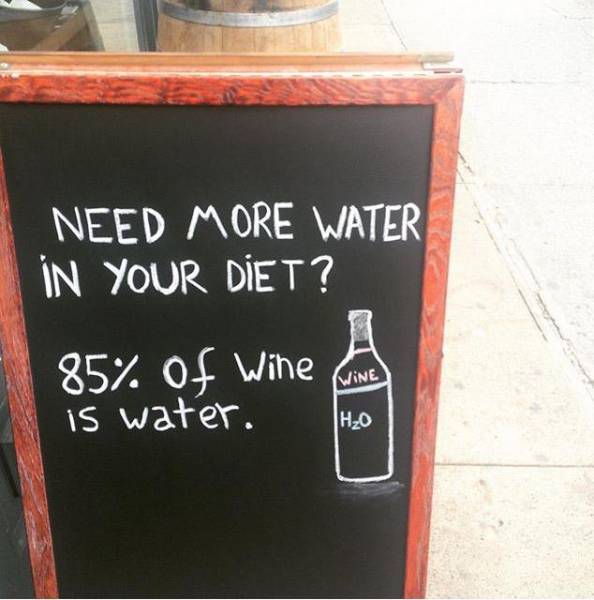 NEED MORE WATER
IN YOUR DIET?
85% Of Wine
is water.
WiNE
H₂O